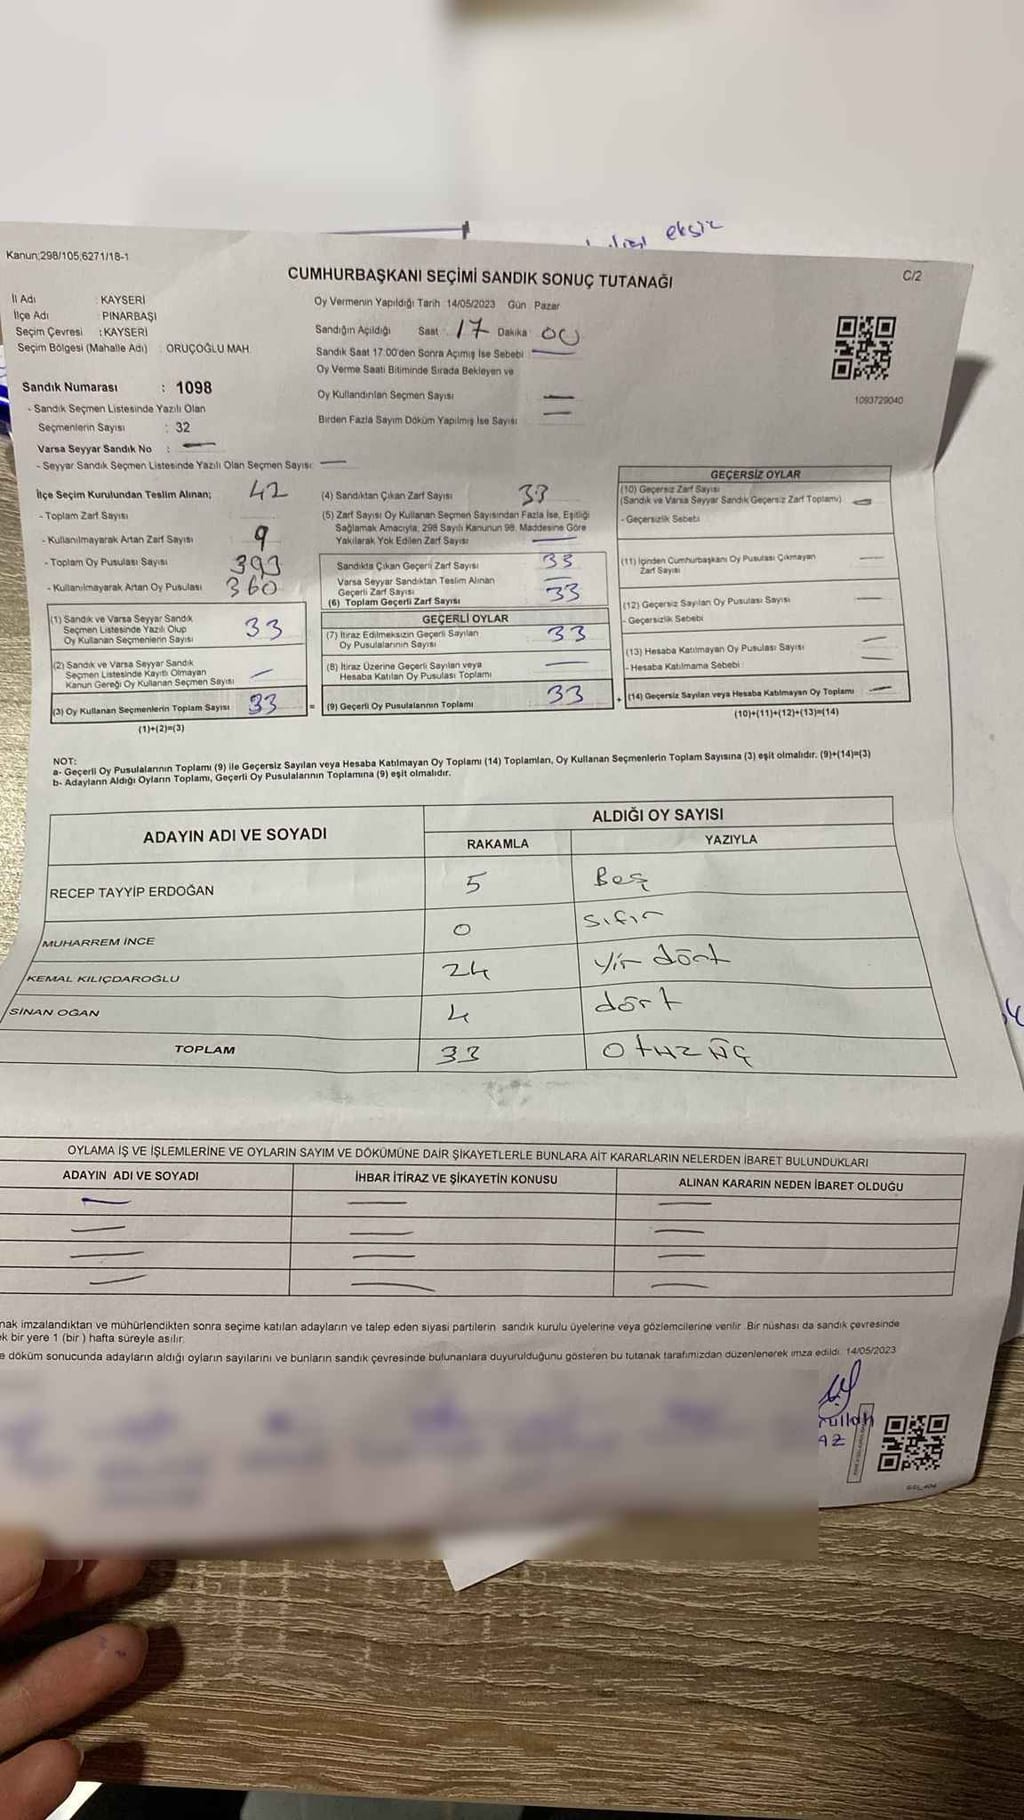 eksik
Kanun;298/105;6271/18-1
CUMHURBAŞKANI SEÇİMİ SANDIK SONUÇ TUTANAĞI
C/2
İl Adı : KAYSERİ
İlçe Adı : PINARBAŞI
Seçim Çevresi : KAYSERİ
Seçim Bölgesi (Mahalle Adı) : ORUÇOĞLU MAH.
Sandık Numarası : 1098
- Sandık Seçmen Listesinde Yazılı Olan
Seçmenlerin Sayısı : 32
Varsa Seyyar Sandık No : —
- Seyyar Sandık Seçmen Listesinde Yazılı Olan Seçmen Sayısı: —
Oy Vermenin Yapıldığı Tarih 14/05/2023 Gün Pazar
Sandığın Açıldığı Saat 17 Dakika 00
Sandık Saat 17:00'den Sonra Açımış İse Sebebi —
Oy Verme Saati Bitiminde Sırada Bekleyen ve
Oy Kullandırılan Seçmen Sayısı —
Birden Fazla Sayım Döküm Yapılmış İse Sayısı —
1093729040
İlçe Seçim Kurulundan Teslim Alınan; 42
- Toplam Zarf Sayısı
- Kullanılmayarak Artan Zarf Sayısı 9
- Toplam Oy Pusulası Sayısı 393
- Kullanılmayarak Artan Oy Pusulası 360
(1) Sandık ve Varsa Seyyar Sandık
Seçmen Listesinde Yazılı Olup
Oy Kullanan Seçmenlerin Sayısı 33
(2) Sandık ve Varsa Seyyar Sandık
Seçmen Listesinde Kayıtlı Olmayan
Kanun Gereği Oy Kullanan Seçmen Sayısı —
(3) Oy Kullanan Seçmenlerin Toplam Sayısı 33
(1)+(2)=(3)
(4) Sandıktan Çıkan Zarf Sayısı 33
(5) Zarf Sayısı Oy Kullanan Seçmen Sayısından Fazla İse, Eşitliği
Sağlamak Amacıyla, 298 Sayılı Kanunun 98. Maddesine Göre
Yakılarak Yok Edilen Zarf Sayısı —
Sandıkta Çıkan Geçerli Zarf Sayısı 33
Varsa Seyyar Sandıktan Teslim Alınan
Geçerli Zarf Sayısı —
(6) Toplam Geçerli Zarf Sayısı 33
GEÇERLİ OYLAR
(7) İtiraz Edilmeksizin Geçerli Sayılan
Oy Pusulalarının Sayısı 33
(8) İtiraz Üzerine Geçerli Sayılan veya
Hesaba Katılan Oy Pusulası Toplamı —
= (9) Geçerli Oy Pusulalarının Toplamı 33
GEÇERSİZ OYLAR
(10) Geçersiz Zarf Sayısı
(Sandık ve Varsa Seyyar Sandık Geçersiz Zarf Toplamı) —
- Geçersizlik Sebebi
(11) İçinden Cumhurbaşkanı Oy Pusulası Çıkmayan
Zarf Sayısı —
(12) Geçersiz Sayılan Oy Pusulası Sayısı —
- Geçersizlik Sebebi
(13) Hesaba Katılmayan Oy Pusulası Sayısı —
- Hesaba Katılmama Sebebi —
+ (14) Geçersiz Sayılan veya Hesaba Katılmayan Oy Toplamı —
(10)+(11)+(12)+(13)=(14)
NOT:
a- Geçerli Oy Pusulalarının Toplamı (9) ile Geçersiz Sayılan veya Hesaba Katılmayan Oy Toplamı (14) Toplamları, Oy Kullanan Seçmenlerin Toplam Sayısına (3) eşit olmalıdır. (9)+(14)=(3)
b- Adayların Aldığı Oyların Toplamı, Geçerli Oy Pusulalarının Toplamına (9) eşit olmalıdır.
ADAYIN ADI VE SOYADI
ALDIĞI OY SAYISI
RAKAMLA YAZIYLA
RECEP TAYYİP ERDOĞAN 5 Beş
MUHARREM İNCE 0 sıfır
KEMAL KILIÇDAROĞLU 24 Yir dört
SİNAN OĞAN 4 dört
TOPLAM 33 otuz üç
OYLAMA İŞ VE İŞLEMLERİNE VE OYLARIN SAYIM VE DÖKÜMÜNE DAİR ŞİKAYETLERLE BUNLARA AİT KARARLARIN NELERDEN İBARET BULUNDUKLARI
ADAYIN ADI VE SOYADI İHBAR İTİRAZ VE ŞİKAYETİN KONUSU ALINAN KARARIN NEDEN İBARET OLDUĞU
— — —
— — —
— — —
— — —
imzalandıktan ve mühürlendikten sonra seçime katılan adayların ve talep eden siyasi partilerin sandık kurulu üyelerine veya gözlemcilerine verilir. Bir nüshası da sandık çevresinde
bir yere 1 (bir) hafta süreyle asılır.
döküm sonucunda adayların aldığı oyların sayılarını ve bunların sandık çevresinde bulunanlara duyurulduğunu gösteren bu tutanak tarafımızdan düzenlenerek imza edildi. 14/05/2023
rullah
AZ